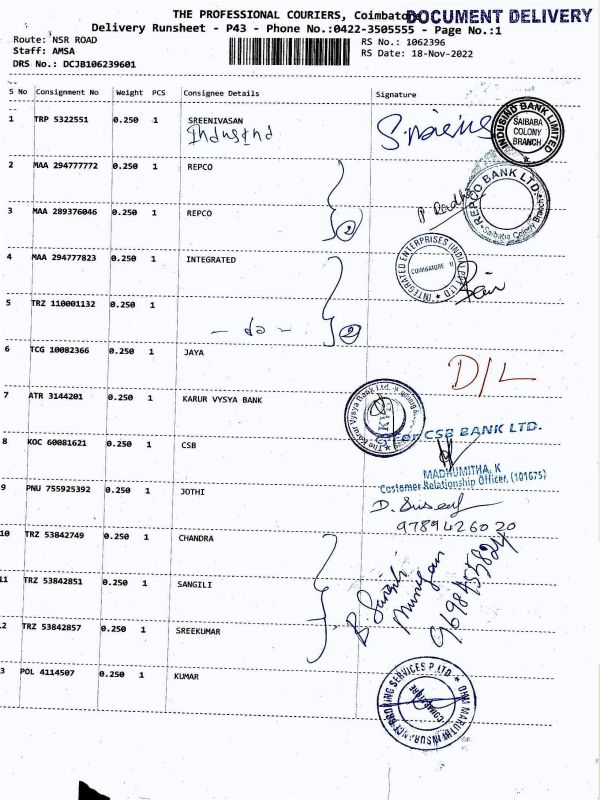 THE PROFESSIONAL COURIERS, Coimbatore
DOCUMENT DELIVERY
Delivery Runsheet - P43 - Phone No.:0422-3505555 - Page No.:1
Route: NSR ROAD
Staff: AMSA
DRS No.: DCJB106239601
RS No.: 1062396
RS Date: 18-Nov-2022
S No Consignment No Weight PCS Consignee Details Signature
1 TRP 5322551 0.250 1 SREENIVASAN
IndusInd
INDUSIND BANK LIMITED
SAIBABA COLONY BRANCH
2 MAA 294777772 0.250 1 REPCO
REPCO BANK LTD.
Saibaba Colony Branch
3 MAA 289376046 0.250 1 REPCO
2
4 MAA 294777823 0.250 1 INTEGRATED
INTEGRATED ENTERPRISES (INDIA) PVT LTD
COIMBATORE
5 TRZ 110001132 0.250 1
- do - 2
6 TCG 10082366 0.250 1 JAYA D/L
7 ATR 3144201 0.250 1 KARUR VYSYA BANK
The Karur Vysya Bank Ltd.
For CSB BANK LTD.
8 KOC 60081621 0.250 1 CSB
MADHUMITHA, K
Customer Relationship Officer, (101675)
9 PNU 755925392 0.250 1 JOTHI
9789426020
10 TRZ 53842749 0.250 1 CHANDRA
11 TRZ 53842851 0.250 1 SANGILI
B Sangili
Murugan
9698455824
2 TRZ 53842857 0.250 1 SREEKUMAR
3 POL 4114507 0.250 1 KUMAR
OHM MARUTHI INSURANCE BROKING SERVICES P LTD
COIMBATORE